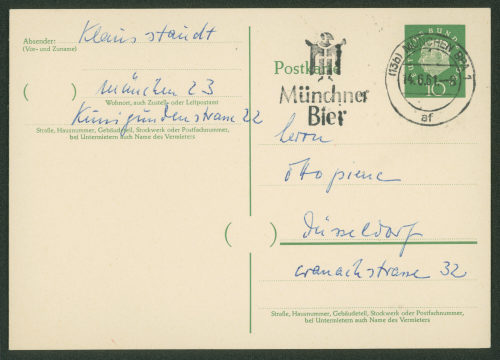 Absender:
(Vor- und Zuname)
Klaus staudt
( )
München 23
Wohnort, auch Zustell- oder Leitpostamt
Künigundenstrasse 22
Straße, Hausnummer, Gebäudeteil, Stockwerk oder Postfachnummer,
bei Untermietern auch Name des Vermieters
Postkarte
Münchner
Bier
(13b) MÜNCHEN BPA 1
14.6.61
af
10
Herrn
Otto piene
( )
Düsseldorf
cranachstrasse 32
Straße, Hausnummer, Gebäudeteil, Stockwerk oder Postfachnummer,
bei Untermietern auch Name des Vermieters